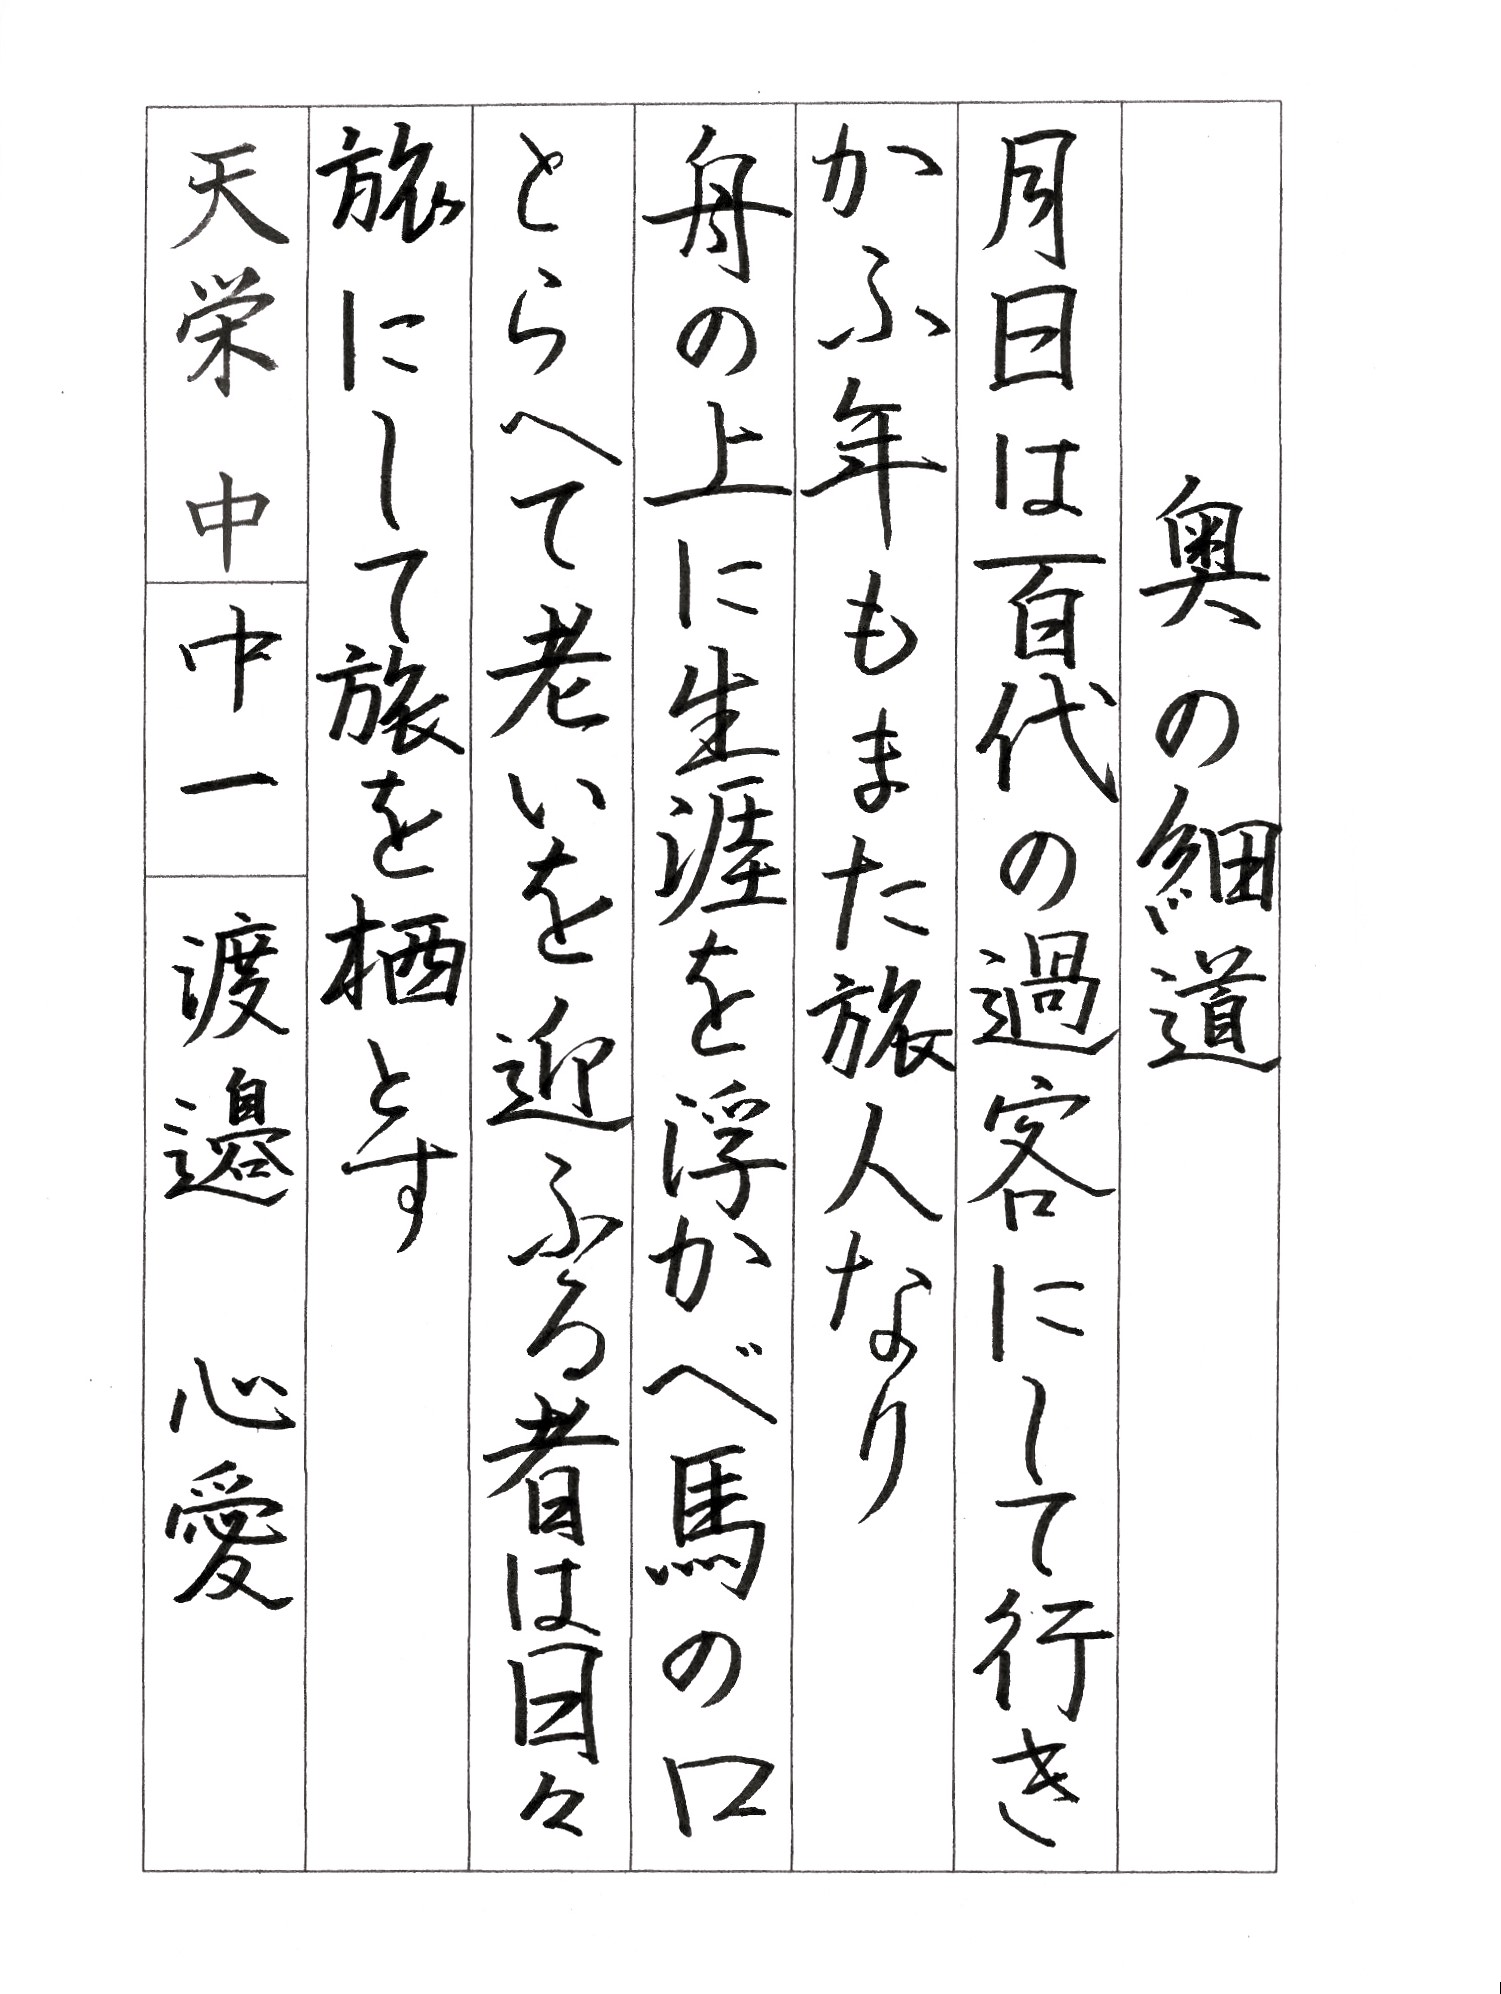 奥の細道
月日は百代の過客にして行き
かふ年もまた旅人なり
舟の上に生涯を浮かべ馬の口
とらへて老いを迎ふる者は日々
旅にして旅を栖とす
天栄中 中一 渡邉 心愛